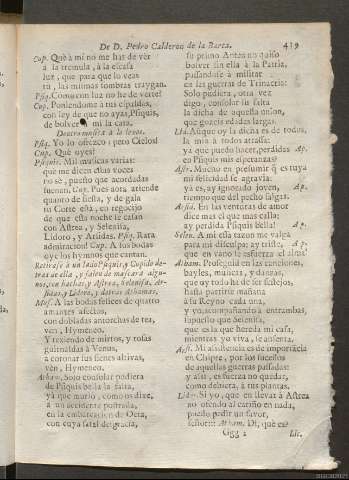 De D. Pedro Calderon de la Barca. 419
Cup. Què à mi no me has de vèr
à la tremula, à la escasa
luz, que para que lo veas
tu, las mismas sombras traygan.
Psiq. Como con luz no he de verte?
Cup. Poniendome à tus espaldas,
con ley de que no ayas, Psiquis,
de bolver à mi la cara.
Dentro musica à lo lexos.
Psiq. Yo lo ofrezco; pero Cielos!
Cup. Què oyes?
Psiquis. Mil musicas varias:
que me dicen estas voces
no sè, puesto que acordadas
suenan. Cup. Pues aora atiende
quanto de fiesta, y de gala
tu Corte està, en regocijo
de que esta noche se casan
con Astrea, y Selenisa,
Lidoro, y Aristas. Psiq. Rara
admiracion! Cup. A las bodas
oye los hymnos que cantan.
Retirase à un lado Psiquis, y Cupido detràs
de ella, y salen de mascara algunos,
con hachas, y Astrea, Selenisa,
y Lidoro, y detràs Athamas.
Mus. A las bodas felices de quatro
amantes afectos,
con dobladas antorchas de tea,
vèn, Hymeneo.
Y texiendo de mirtos, y rosas
guirnaldas à Venus,
à coronar sus sienes altivas,
vèn, Hymeneo.
Atham. Solo consolar pudiera
de Psiquis bella la falta,
yà que murio, como os dixe,
à un accidente postrada,
en la embarcacion de Oeta,
con cuya fatal desgracia,
su primo Anteo no quiso
bolver sin ella à la Patria,
passandose à militar
en las guerras de Trinacria:
Solo pudiera, otra vez
digo, consolar su falta
la dicha de aquesta union,
que goceis edades largas.
Lid. Aunque oy la dicha es de todos,
la mia à todos atrassa:
ya que puedo hacer, perdidas Ap.
en Psiquis mis esperanzas?
Astr. Mucho en presumir q̃ es tuya
mi felicidad se agravia:
yà es, ay ignorado joven, Ap.
tiempo que del pecho salgas.
Arist. En las venturas de amor
dice mas el que mas calla:
ay perdida Psiquis bella! Ap.
Selen. A mi essa razon me valga
para mi disculpa; ay triste, Ap.
que en vano se esfuerza el alma!
Atham. Proseguid en las canciones,
bayles, musicas, y danzas,
que oy todo ha de ser festejos,
hasta partirse mañana
à su Reyno cada una,
y yo, acompañando à entrambas,
supuesto que Selenisa,
que es la que hereda mi casa,
mientras yo viva, se ausenta.
Arist. Mi assistencia es de importãcia
en Chipre, por los sucessos
de aquellas guerras passadas:
y assi, es fuerza no quedar,
como debiera, à tus plantas.
Lid. Si yo, que en llevar à Astrea
no ofendo al cariño en nada,
puedo pedir un favor,
señor: Atham. Dì, què es?
Ggg 2 Lid.